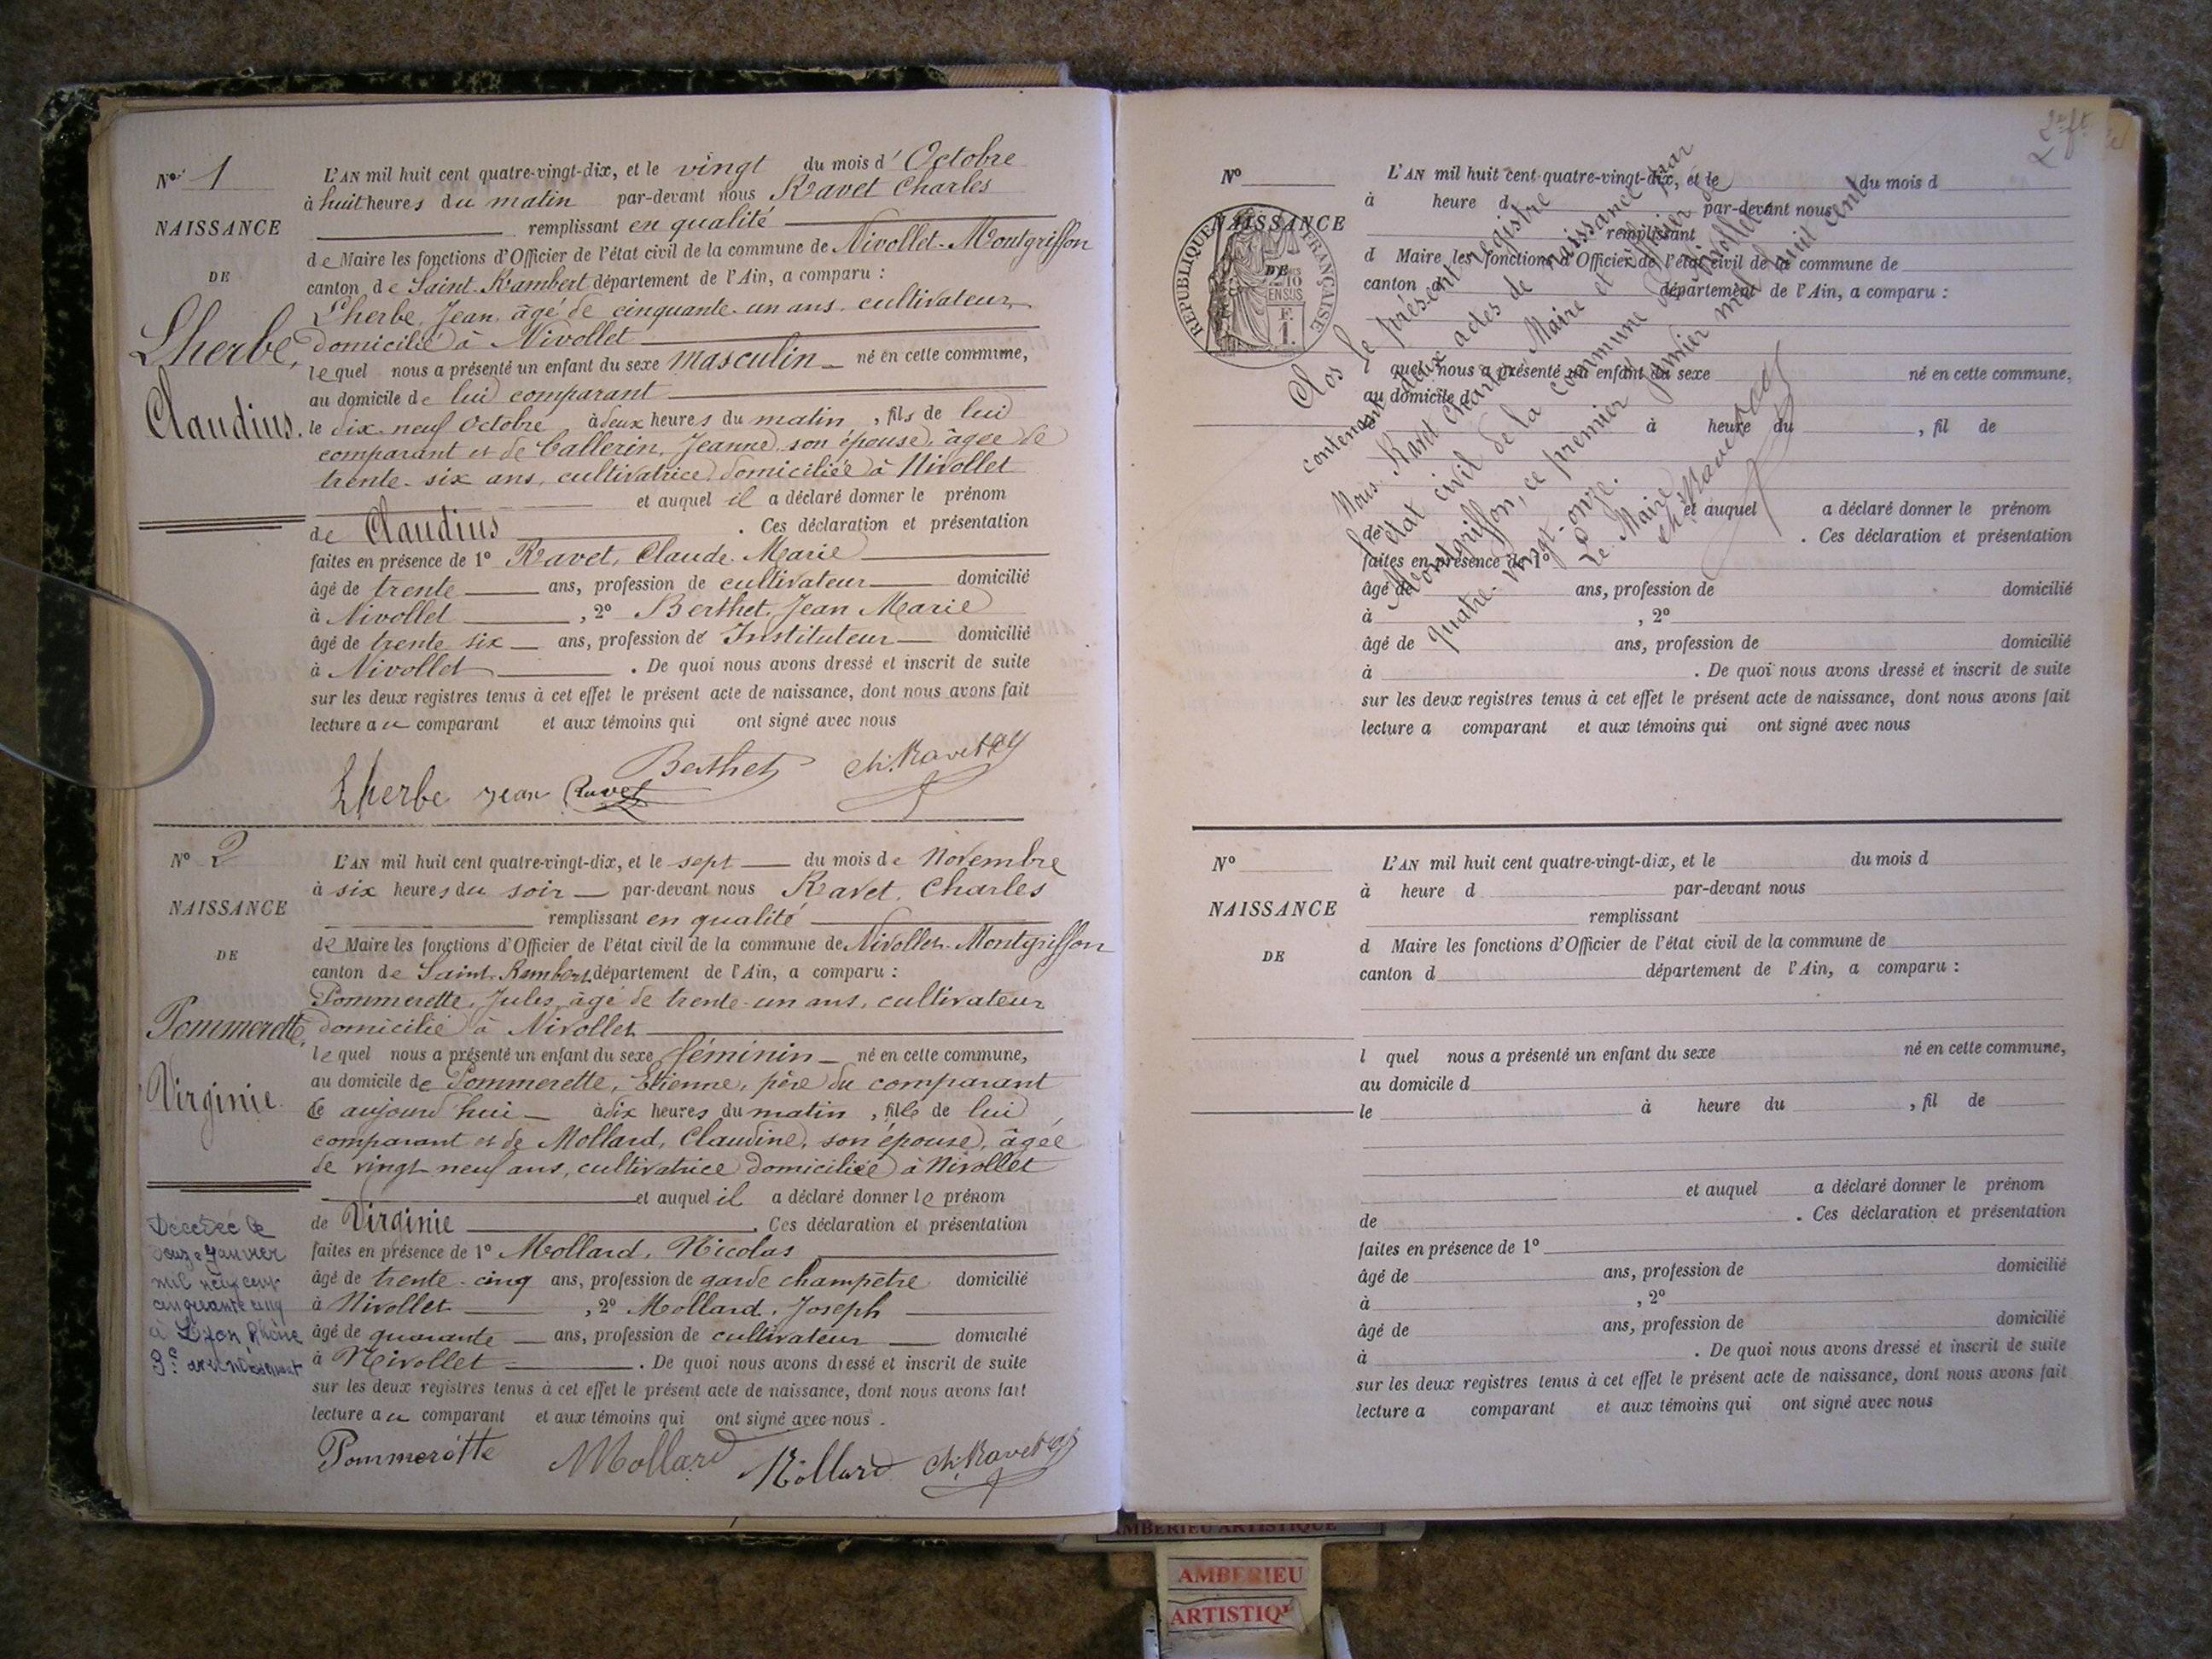 N° 1
NAISSANCE
DE
Lherbe,
Claudius.
L'AN mil huit cent quatre-vingt-dix, et le vingt du mois d' Octobre
à huit heures du matin par-devant nous Ravet Charles
remplissant en qualité
de Maire les fonctions d'Officier de l'état civil de la commune de Nivollet-Montgriffon
canton de Saint-Rambert département de l'Ain, a comparu :
Lherbe, Jean, âgé de cinquante-un ans, cultivateur,
domicilié à Nivollet
lequel nous a présenté un enfant du sexe masculin né en cette commune,
au domicile de lui comparant
le dix-neuf Octobre à deux heures du matin, fils de lui
comparant et de Callerin, Jeanne, son épouse, âgée de
trente-six ans, cultivatrice, domiciliée à Nivollet
et auquel il a déclaré donner le prénom
de Claudius. Ces déclaration et présentation
faites en présence de 1° Ravet, Claude-Marie
âgé de trente ans, profession de cultivateur domicilié
à Nivollet, 2° Berthet, Jean Marie
âgé de trente six ans, profession de Instituteur domicilié
à Nivollet. De quoi nous avons dressé et inscrit de suite
sur les deux registres tenus à cet effet le présent acte de naissance, dont nous avons fait
lecture au comparant et aux témoins qui ont signé avec nous
Berthet ch. Ravet
Lherbe jean Ravet
N° 2
NAISSANCE
DE
Pommerette,
Virginie.
L'AN mil huit cent quatre-vingt-dix, et le sept du mois de Novembre
à six heures du soir par-devant nous Ravet, Charles
remplissant en qualité
de Maire les fonctions d'Officier de l'état civil de la commune de Nivollet-Montgriffon
canton de Saint-Rambert département de l'Ain, a comparu :
Pommerette, Jules, âgé de trente-un ans, cultivateur
domicilié à Nivollet
lequel nous a présenté un enfant du sexe féminin né en cette commune,
au domicile de Pommerette, Etienne, père du comparant
le aujourd'hui à dix heures du matin, fille de lui
comparant et de Mollard, Claudine, son épouse, âgée
de vingt neuf ans, cultivatrice domiciliée à Nivollet
et auquel il a déclaré donner le prénom
de Virginie. Ces déclaration et présentation
faites en présence de 1° Mollard, Nicolas
âgé de trente-cinq ans, profession de garde champêtre domicilié
à Nivollet, 2° Mollard, Joseph
âgé de quarante ans, profession de cultivateur domicilié
à Nivollet. De quoi nous avons dressé et inscrit de suite
sur les deux registres tenus à cet effet le présent acte de naissance, dont nous avons fait
lecture au comparant et aux témoins qui ont signé avec nous.
Pommerette Mollard Mollard ch. Ravet
Décédée le
Janvier
mil neuf cent
cinquante cinq
à Lyon Rhône
3e arrondissement
N°
NAISSANCE
DE
RÉPUBLIQUE FRANÇAISE
2/10
EN SUS
F.
1.
L'AN mil huit cent quatre-vingt-dix, et le du mois d
à heure d par-devant nous
remplissant
d Maire les fonctions d'Officier de l'état civil de la commune de
canton département de l'Ain, a comparu :
l quel nous a présenté un enfant du sexe né en cette commune,
au domicile d
à heure du , fil de
et auquel a déclaré donner le prénom
de . Ces déclaration et présentation
faites en présence de 1°
âgé de ans, profession de domicilié
à , 2°
âgé de ans, profession de domicilié
à . De quoi nous avons dressé et inscrit de suite
sur les deux registres tenus à cet effet le présent acte de naissance, dont nous avons fait
lecture a comparant et aux témoins qui ont signé avec nous
Clos le présent registre
contenant deux actes de naissance par
Nous Ravet Charles, Maire et officier de
l'état civil de la commune de Nivollet
Montgriffon, ce premier janvier mil huit cent
quatre-vingt-onze.
Le Maire
ch. Ravet
N°
NAISSANCE
DE
L'AN mil huit cent quatre-vingt-dix, et le du mois d
à heure d par-devant nous
remplissant
d Maire les fonctions d'Officier de l'état civil de la commune de
canton d département de l'Ain, a comparu :
l quel nous a présenté un enfant du sexe né en cette commune,
au domicile d
le à heure du , fil de
et auquel a déclaré donner le prénom
de . Ces déclaration et présentation
faites en présence de 1°
âgé de ans, profession de domicilié
à , 2°
âgé de ans, profession de domicilié
à . De quoi nous avons dressé et inscrit de suite
sur les deux registres tenus à cet effet le présent acte de naissance, dont nous avons fait
lecture a comparant et aux témoins qui ont signé avec nous
AMBERIEU ARTISTIQUE
AMBERIEU
ARTISTIQUE